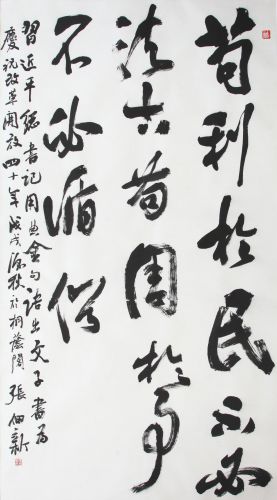 苟利於民不必
法古苟周於事
不必循俗
習近平總書記用典金句語出文子書為
慶祝改革開放四十年戊戌深秋於桐蔭閣 張佃新